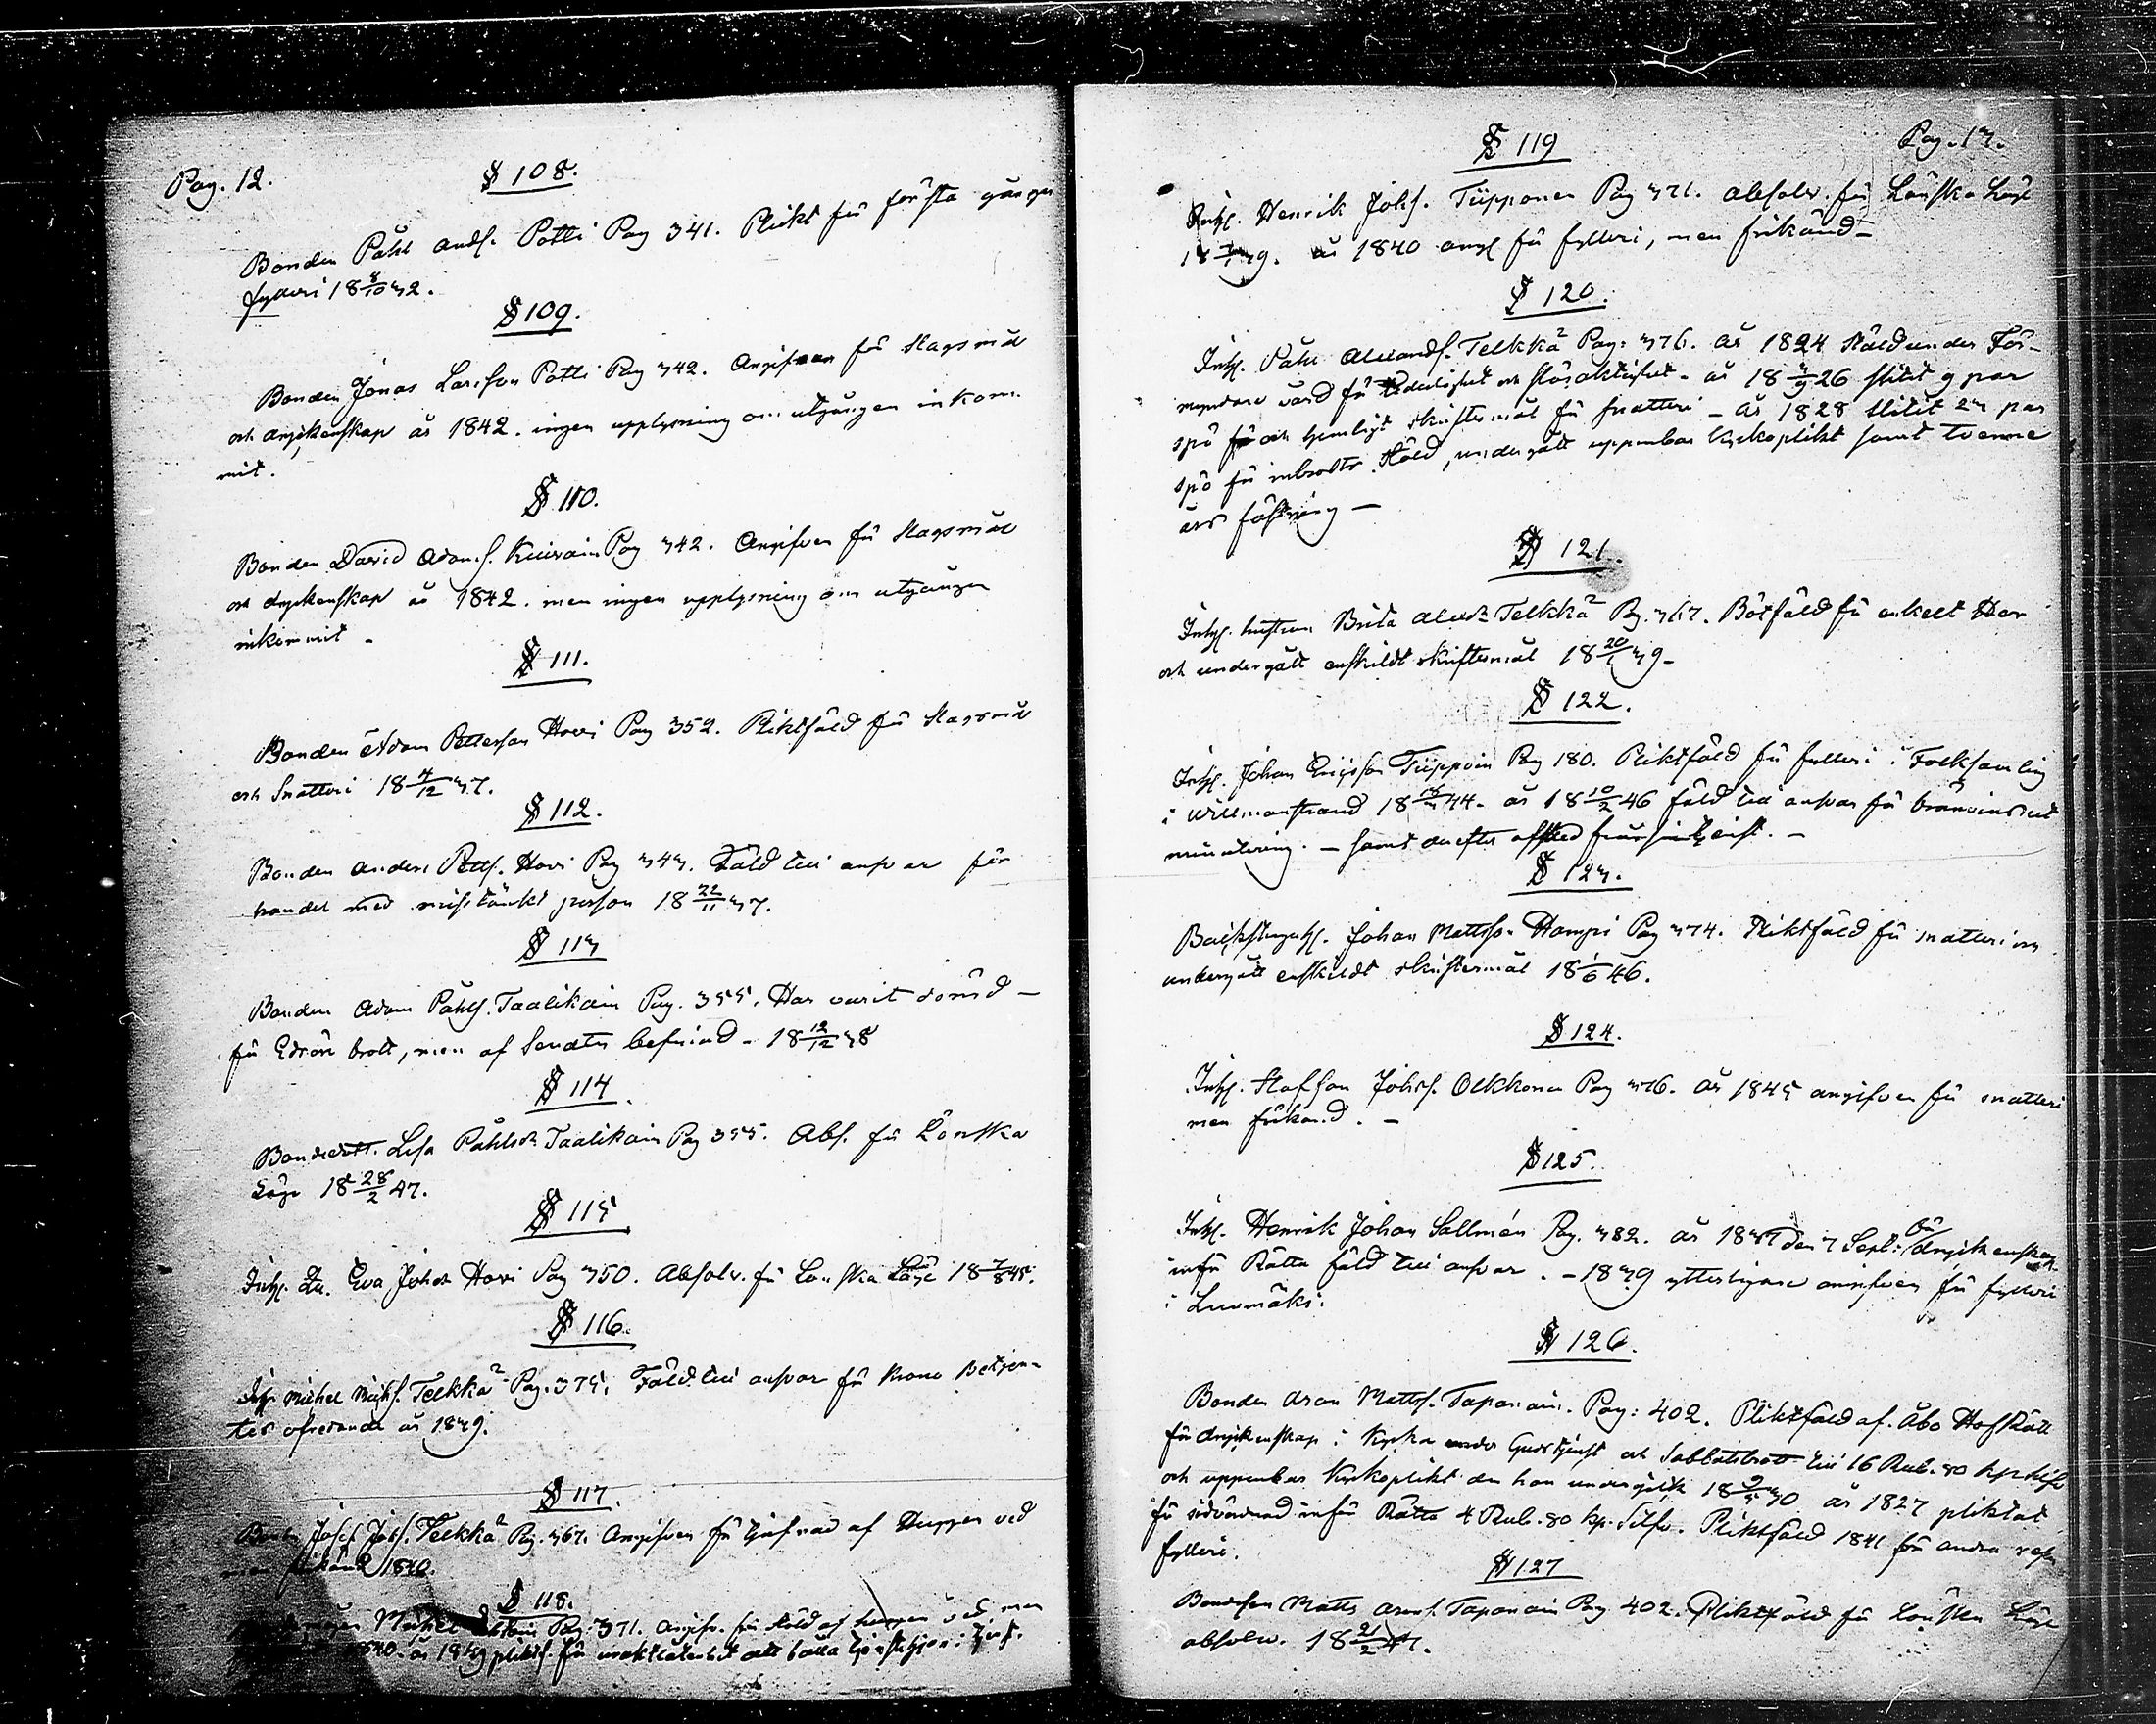 Pag. 12.
§ 108.
Bonden Påhl Andss. Potti Pag 341. Plikt för första gången
fylleri 18 8/10 32.
§ 109.
Bonden Jonas Larsson Potti Pag 342. Angifven för slagsmål
och dryckenskap år 1842. ingen upplysning om utgången inkom-
mit.
§ 110.
Bonden David Adams. Kuivain Pag 342. Angifven för slagsmål
och dryckenskap år 1842. men ingen upplysning om utgången
inkommit -
§ 111.
Bonden Adam Petterson Hovi Pag 352. Pliktfäld för slagsmål
och snatteri 18 4/12 37.
§ 112.
Bonden Anders Petts. Hovi Pag 343. Fäld till ansvar för
handel med misstänkt person 18 22/11 37.
§ 113
Bonden Adam Påhls. Taalikain Pag. 355. Har varit dömd -
för Edsöre brott, men af Senaten befriad - 18 12/12 38
§ 114.
Bondedott. Lisa Påhlsdr Taalikain Pag 355. Abs. för Lönska
Läge 18 28/2 47.
§ 115
Inhs. Eva Johsdr Hovi Pag 350. Absolv. för Lönska Läge 18 7/8 45.
§ 116.
Inhs Michel Michs. Telkkä Pag. 375. Fäld till ansvar för Krono Betjen-
tes ofredande år 1839.
§ 117.
Josef Jos. Telkkä Pag. 367. Angifven för tjufnad af Hugger ved
men frikänd 1840.
§ 118.
Michel Pag. 371. Angifv. för stöld af huggen ved men
1840. år 1839 pliktf. för

Pag. 13.
§ 119
Inhs. Henrik Johs. Tiipponen Pag 371. absolv. för Lönska Läge
18 39. år 1840 angf för fylleri, men frikänd -
§ 120.
Inhs. Påhl Alexands. Telkkä Pag: 376. år 1824 stäld under För-
myndare vård för liderlighet och slösaktighet - år 18 3/9 26 slitit 9 par
spö och hemligt skriftermål för snatteri - År 1828 slitit 23 par
spö för inbrotts stöld, undergått uppenbar Kyrkoplikt samt tvenne
års fästning -
§ 121.
Inhs. hustrun Brita Alexdr Telkkä Pag. 367. Bötfäld för enkelt Hor
och undergått enskildt skriftermål 18 20/1 39 -
§ 122.
Inhs. Johan Ericsson Tiippoin Pag 180. Pliktfäld för fylleri i Folksamling
i Willmanstrand 18 44 - år 18 10/2 46 fäld till ansvar för bränvins ut
minutering. - samt derefter
§ 123.
Johan Mattsson Hompi Pag 374. Pliktfäld för snatteri och
undergått enskildt skriftermål 18 1/6 46.
§ 124.
Inhs. Staffan Johss. Olkkonen Pag 376. År 1845 angifven för snatteri
men frikänd. -
§ 125.
Inhs. Henrik Johan Sallmén Pag. 382. år 1837 den 7 Sept: för dryckenskap
inför Rätta fäld till ansvar. - 1839 ytterligare angifven för fylleri
i Luumäki.
§ 126.
Bonden Aron Mattss. Taponain. Pag: 402. Pliktfäld af Åbo HofRätt
för dryckenskap i Kyrka under Gudstjenst och Sabbatsbrott till 16 Rub. 80 kp silfr
och uppenbar Kyrkoplikt den han undergått 18 30 år 1827 pliktat
för ordvärnad inför Rätta 4 Rub. 80 kp. Silfr. Pliktfäld 1841 för andra resan
fylleri.
§ 127
Bondeson Matts Arons. Taponain Pag 402. Pliktfäld för Lönska Läge
absolv. 18 21/2